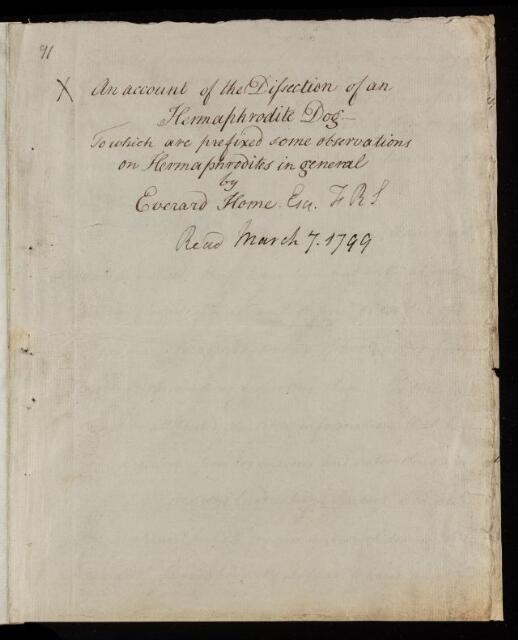 91
X An account of the Dissection of an
Hermaphrodite Dog—
To which are prefixed some observations
on Hermaphrodites in general
by
Everard Home. Esq. F R S
Read March 7. 1799